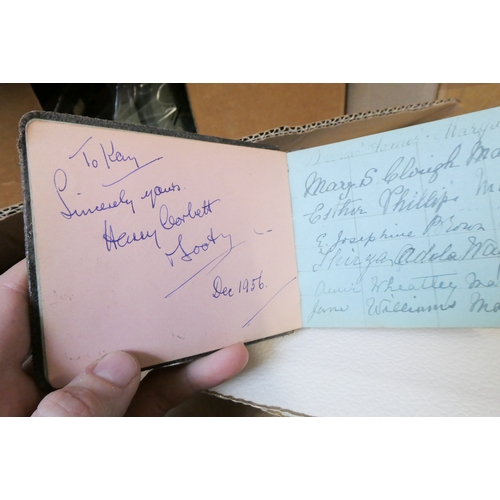 To Kay
Sincerely yours.
Henry Corbett
& Sooty
Dec 1956.
Mary S. Clough Ma
Esther Phillips M
E. Josephine Brown
Thirza Adola Wa
Annie Wheatley Ma
Jane Williams Ma